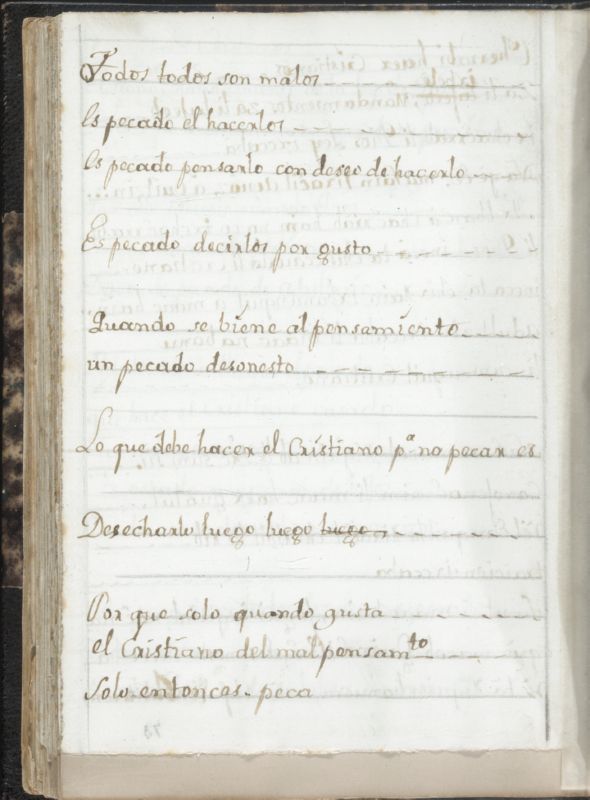 Todos todos son malos
Es pecado el hacerlos
Es pecado pensarlo con deseo de hacerlo
Es pecado decirlos por gusto
Quando se viene al pensamiento
un pecado desonesto
Lo que debe hacer el Cristiano pª no pecar es
Desecharlo luego luego luego
Por que solo quando gusta
el Cristiano del mal pensamto
Solo entonces peca